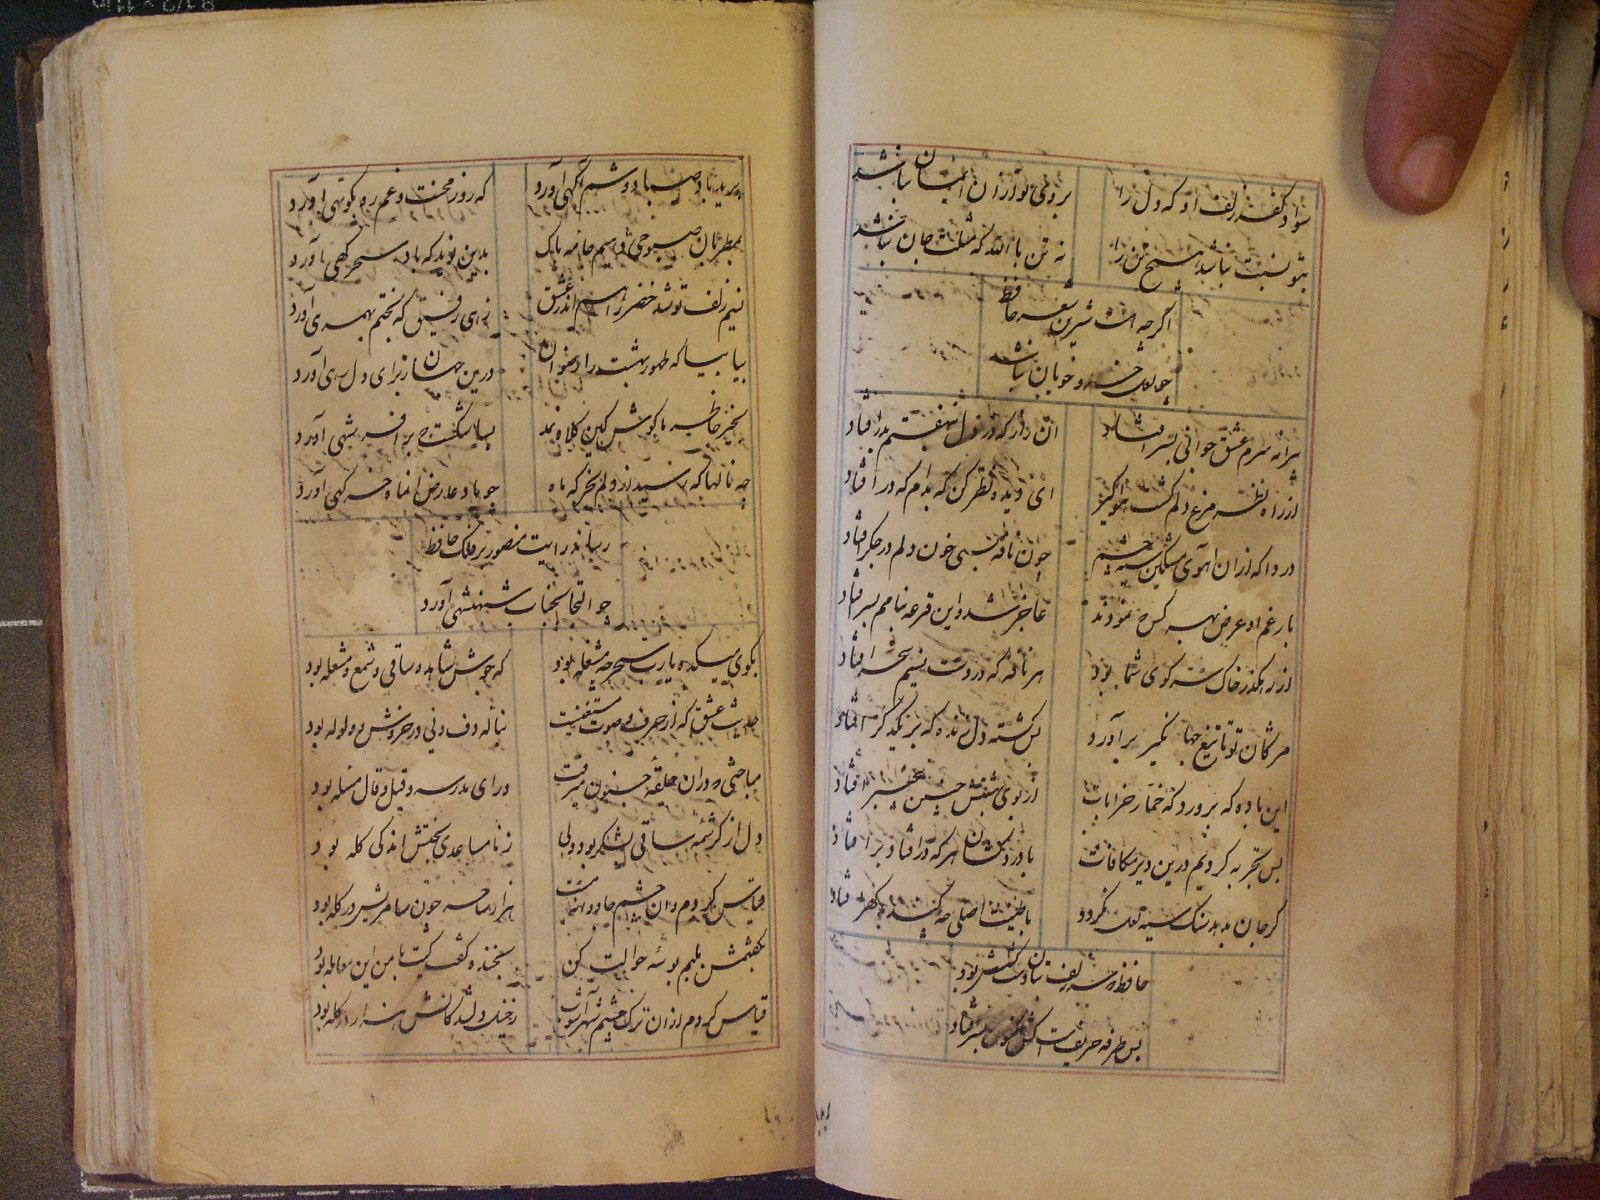 سواد کفر زلف او که دل را
بروی تو از آن ایمان نباشد
بتو نسبت نباشد هیچ تن را
نه تن بالله که مثلت جان نباشد
اگرچه هست شیرین شعر حافظ
چو لعل خسرو خوبان نباشد
پیرانه سرم عشق جوانی بسر افتاد
آن راز که در دل بنهفتم بدر افتاد
از راه نظر مرغ دلم گشت هواگیر
ای دیده نظر کن که بدام که در افتاد
دردا که از آن آهوی مشکین سیه چشم
چون نافه بسی خون دلم در جگر افتاد
بار غم او عرض بهر کس که نمودند
عاجز شد و این قرعه بنامم بسر افتاد
از رهگذر خاک سر کوی شما بود
هر نافه که در دست نسیم سحر افتاد
مژگان تو تا تیغ جهانگیر برآورد
بس کشته دل زنده که بر یکدگر افتاد
این باده که پرورد که خمار خرابات
از بوی بهشتش چنین بیخبر افتاد
بس تجربه کردیم درین دیر مکافات
با دردکشان هر که در افتاد بر افتاد
گر جان بدهد سنگ سیه لعل نگردد
با طینت اصلی چه کند بدگهر افتاد
حافظ که سر زلف بتان دست کشش بود
بس طرفه حریفیست کش اکنون بسر افتاد
برید باد صبا دوشم آگهی آورد
که روز محنت و غم رو بکوتهی آورد
بمطربان صبوحی دهیم جامه پاک
بدین نوید که باد سحرگهی آورد
نسیم زلف تو شد خضر راهم اندر عشق
زهی رفیق که بختم بهمرهی آورد
بیا بیا که حور بهشت را رضوان
درین جهان ز برای دل رهی آورد
بخیر خاطر ما کوش کین کلاه نمد
بسا شکست که بر افسر شهی آورد
چه نالها که رسید از دلم بخرگه ماه
چو یاد عارض آن ماه خرگهی آورد
رساند رایت منصور بر فلک حافظ
چو التجا بجناب شهنشهی آورد
بکوی میکده یارب سحر چه مشغله بود
که جوش شاهد و ساقی و شمع و مشعله بود
حدیث عشق که از حرف و صوت مستغنیست
بناله دف و نی در خروش و ولوله بود
مباحثی که در آن حلقه جنون میرفت
ورای مدرسه و قیل و قال مسئله بود
دل از کرشمه ساقی بشکر بود ولی
ز نامساعدی بختش اندکی گله بود
قیاس کردم و آن چشم جادوانه مست
هزار ساحر چون سامریش در گله بود
بگفتمش بلبم بوسه حوالت کن
بخنده گفت کیت با من این معامله بود
قیاس کردم از آن ترک چشم شهرآشوب